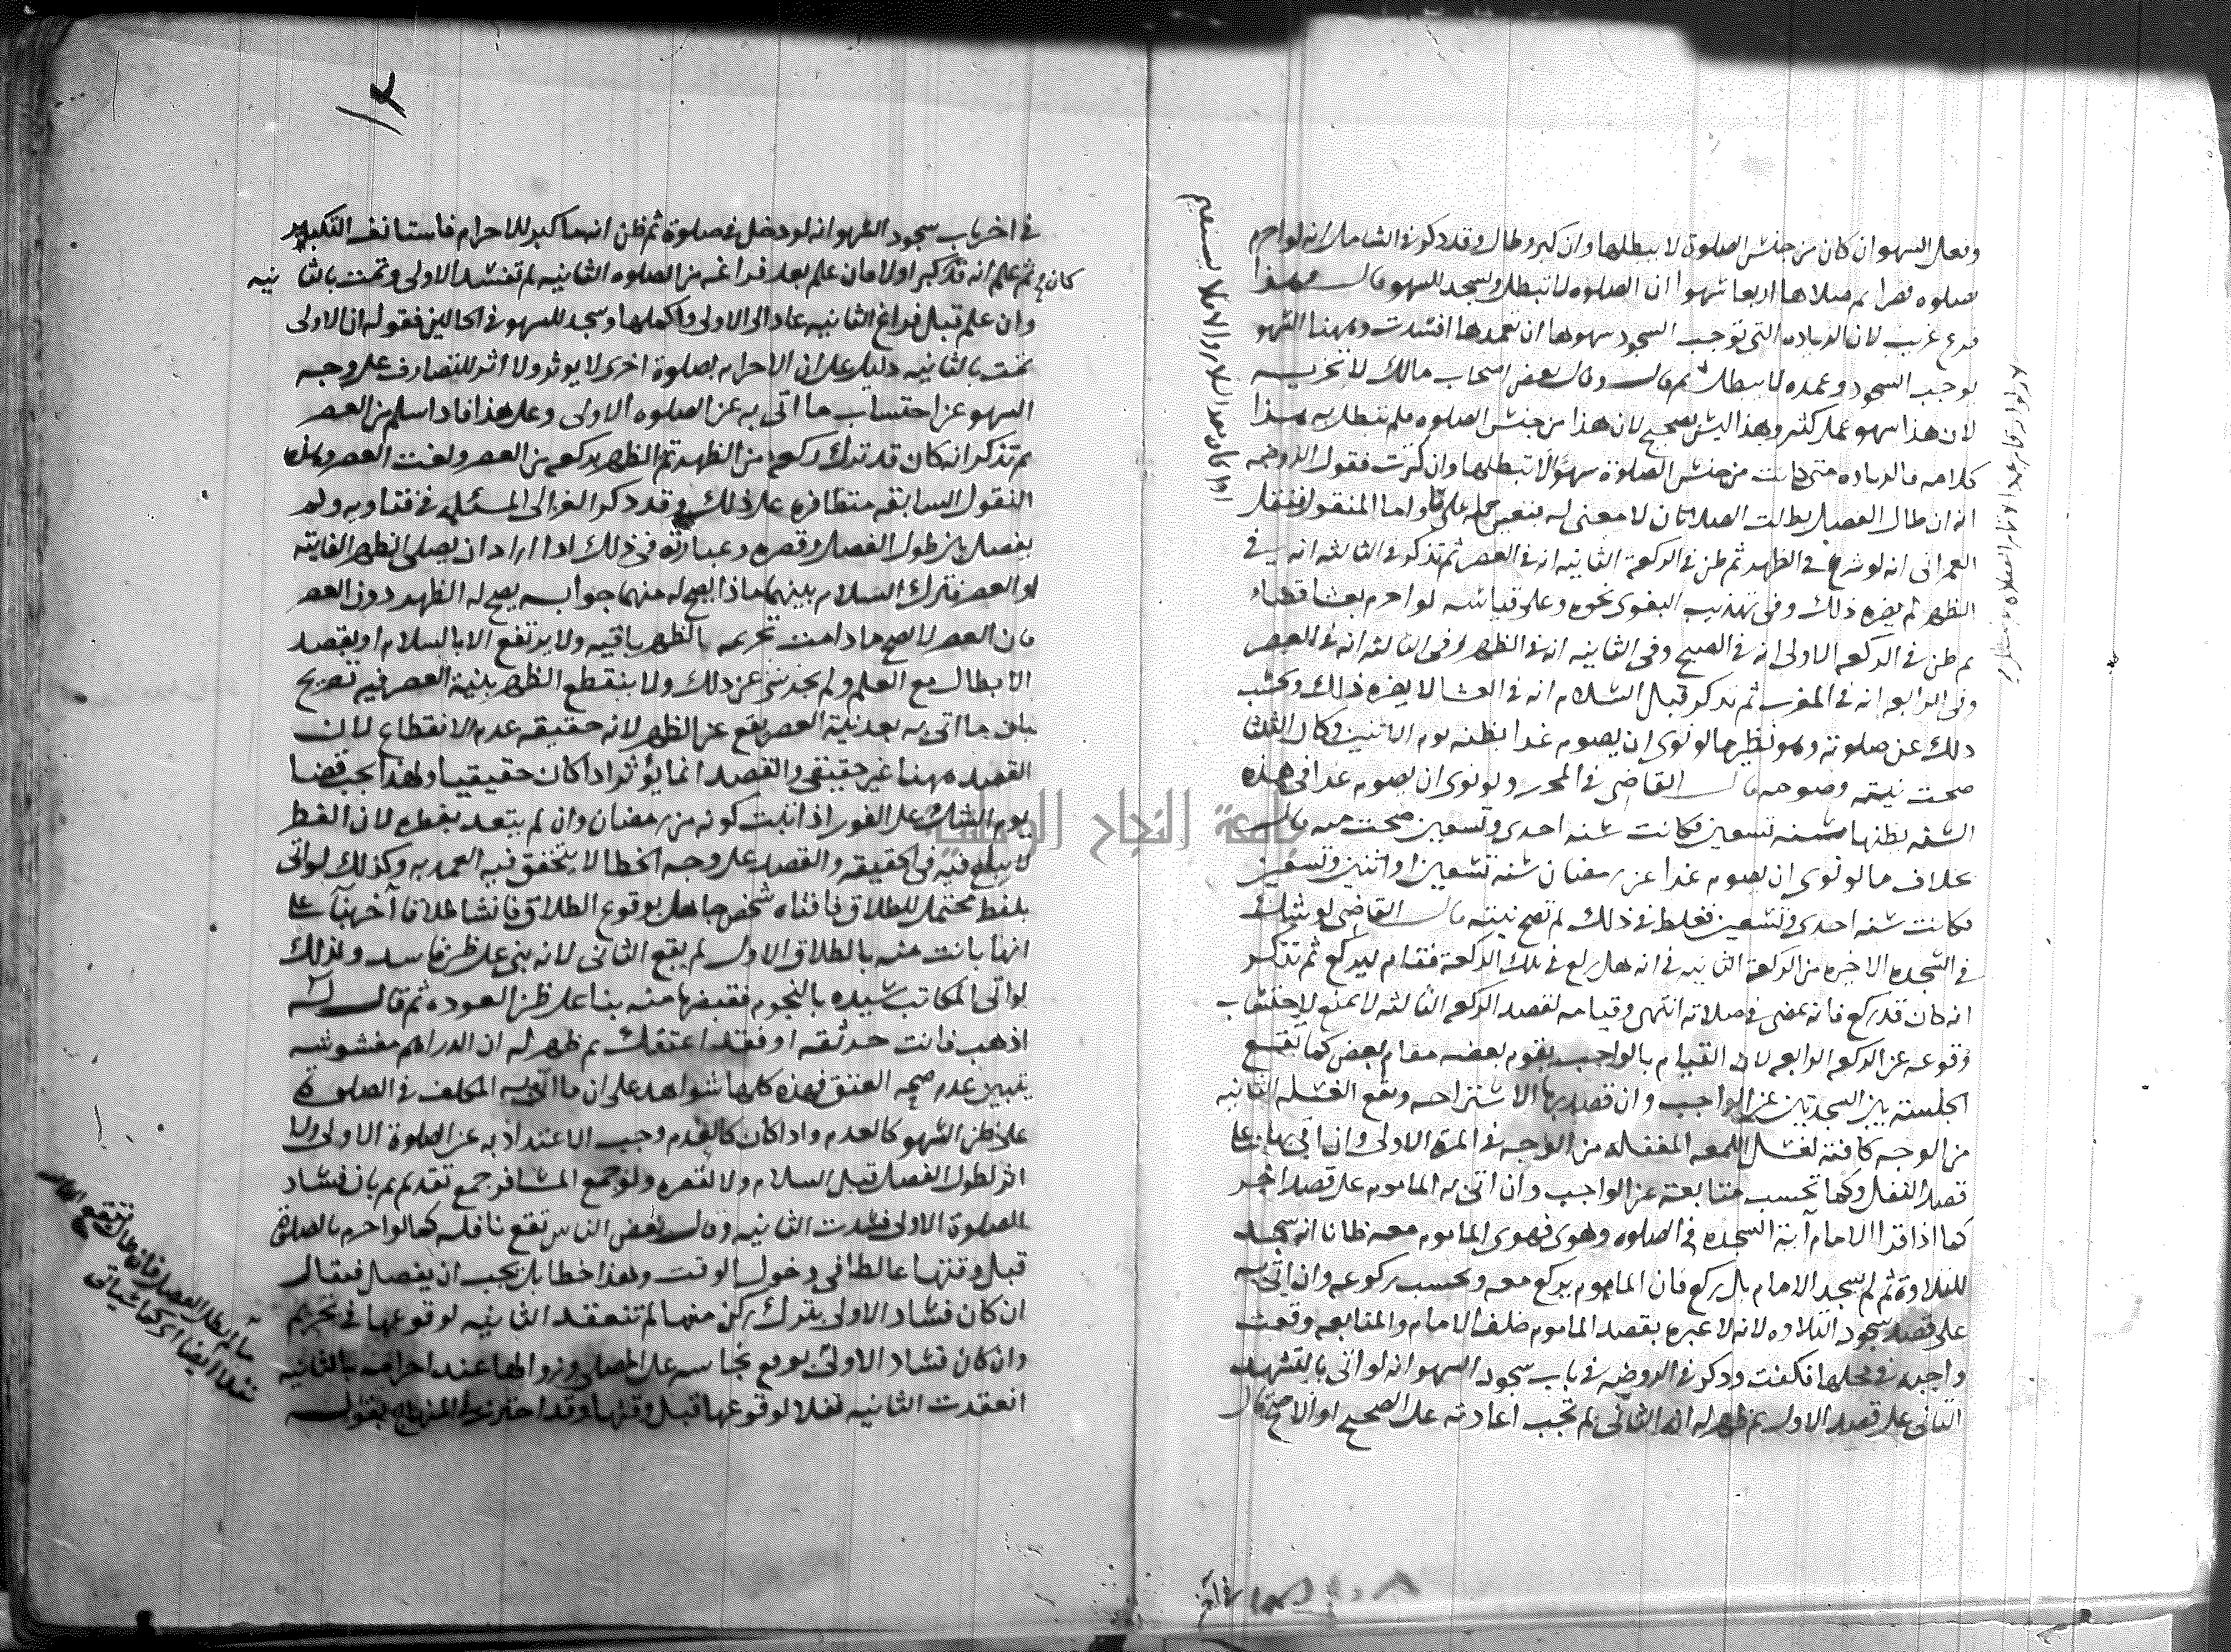 وفعل السهو ان كان من جنس الصلوة لا يبطلها وان كبر وطال وقد ذكر في الشامل انه لو احرم
بصلوه ثم صلاها اربعا سهوا ان الصلوه لا تبطل ويسجد للسهو قال وهذا
فرع غريب لان الزياده التى توجب السجود سهوها ان تعمدها افسدت وههنا السهو
يوجب السجود وعمده لا يبطل ثم قال وقال بعض اصحاب مالك لا تجزيه
لان هذا سهو عمل كثير وهذا ليس بصحيح لان هذا من جنس الصلوه فلم تبطل به هذا
كلامه فالزياده متى كانت من جنس الصلوة سهوا لا تبطلها وان كثرت فقول الروضه
انه ان طال الفصل بطلت الصلاتان لا معنى له يتعين حمله على واما المنقول فنقل
العمرانى انه لو شرع في الظهر ثم ظن في الركعة الثانيه انه في العصر ثم تذكر في الثالثه انه في
الظهر لم يضره ذلك وفى تهذيب البغوى نحوه وعلى قياسه لو احرم بعشا قضاء
ثم ظن في الركعه الاولى انه في الصبح وفى الثانيه انه في الظهر وفى الثالثه انه في العصر
وفى الرابعه انه في المغرب ثم تذكر قبل السلام انه في العشا لا يضره ذلك وتحسب
ذلك عن صلوته وهو نظير ما لو نوى ان يصوم غدا يظنه يوم الاثنين وكان الثلثا
صحت نيته وصومه قال القاضى في المحرر ولو نوى ان يصوم غدا في هذه
السنه يظنها سنه تسعين فكانت سنه احدى وتسعين صحت نيته قال
بخلاف ما لو نوى ان يصوم غدا عن رمضان سنه تسعين او اثنين وتسعين
فكانت سنه احدى وتسعين فغلط في ذلك لم تصح نيته قال القاضى لو شك
في السجده الاخيره من الركعة الثانيه في انه هل ركع في تلك الركعة فقام ليركع ثم تذكر
انه كان قد ركع فانه يمضى في صلاته انتهى وقيامه لقصد الركعه الثالثه لا يمنع الاحتساب
وقوعه عن الركعه الرابعه لان القيام بالواجب يقوم بعضه مقام بعض كما تقع
الجلسة بين السجدتين عن الواجب وان قصد بها الاستراحه وتقع الغسله الثانيه
من الوجه كافته لغسل اللمعه المغفله من الوجه في المرة الاولى وان اتى بها على
قصد النفل وكما تحسب متابعة عن الواجب وان اتى به الماموم على قصد اخر
كما اذا قرا الامام آية السجده في الصلوه وهوى فهوى الماموم معه ظانا انه سجد
للتلاوة ثم لم يسجد الامام بل ركع فان الماموم يركع معه ويحسب ركوعه وان اتى به
على قصد سجود التلاوه لانه لا عبره بقصد الماموم خلف الامام والمتابعه وقعت
واجبه في محلها فكفت وذكر في الروضه في باب سجود السهو انه لو اتى بالتشهد
الثانى على قصد الاول ثم ظهر له انه الثانى لم تجب اعادته على الصحيح او الاصح قال
في اخر باب سجود السهو انه لو دخل في صلوة ثم ظن انه ما كبر للاحرام فاستانف التكبير
كان ثم علم انه قد كبر اولا فان علم بعد فراغه من الصلوه الثانيه لم تفسد الاولى وتمت بالثانيه
وان علم قبل فراغ الثانيه عاد الى الاولى واكملها وسجد للسهو في الحالين فقوله ان الاولى
تمت بالثانيه دليل على ان الاحرام بصلوة اخرى لا يوثر ولا اثر للتصارف على وجه
السهو عن احتساب ما اتى به عن الصلوه الاولى وعلى هذا فاذا سلم من العصر
ثم تذكر انه كان قد ترك ركعه من الظهر تم الظهر بركعه من العصر ولغت العصر وهذه
النقول السابقه متظافره على ذلك وقد ذكر الغزالى المسئله في فتاويه ولم
يفصل بين طول الفصل وقصره وعبارته في ذلك اذا اراد ان يصلى الظهر الفايته
او العصر فترك السلام بينهما ماذا يصح له منهما جوابه يصح له الظهر دون العصر
فان العصر لا يصح ما دامت تحريمه بالظهر باقيه ولا يرتفع الا بالسلام او بقصد
الابطال مع العلم ولم يجد شى عن ذلك ولا ينقطع الظهر بنية العصر فيه تصريح
بان ما اتى به بعد نية العصر يقع عن الظهر لانه حقيقه عدم الانقطاع لان
القصد ههنا غير حقيقى والقصد انما يؤثر اذا كان حقيقيا ولهذا يجب قضا
يوم الشك على الفور اذا ثبت كونه من رمضان وان لم يتعد بفطره لان الفطر
لا يباح فيه في الحقيقه والقصد على وجه الخطا لا يتحقق فيه العمد به وكذلك لو اتى
بلفظ محتمل للطلاق فافتاه شخص جاهل بوقوع الطلاق فانشا طلاقا آخر بنآ على
انها بانت منه بالطلاق الاول لم يقع الثانى لانه بنى على ظن فاسد وكذلك
لو اتى المكاتب سيده بالنجوم فقبضها منه بنا على ظن العوده ثم قال له
اذهب فانت حر ثقه او فقد اعتقتك ثم ظهر له ان الدراهم مغشوشه
يتبين عدم صحه العتق فهذه كلها شواهد على ان ما اتى به المكلف في الصلوة
على ظن السهو كالعدم واذا كان كالعدم وجب الاعتداد به عن الصلوة الاولى ولا
اثر لطول الفصل قبل السلام ولا لقصره ولو جمع المسافر جمع تقديم ثم بان فساد
الصلوة الاولى فسدت الثانيه وقال بعض الناس تقع نافله كما لو احرم بالصلوة
قبل وقتها غالطا في دخول الوقت وهذا خطا بل يجب ان يفصل فيقال
ان كان فساد الاولى بترك ركن منها لم تنعقد الثانيه لوقوعها في تحريم
وان كان فساد الاولى بوقوع نجاسه على المصلى وزوالها عند احرامه بالثانيه
انعقدت الثانيه نفلا لوقوعها قبل وقتها وقد احترز في المنهاج بقوله